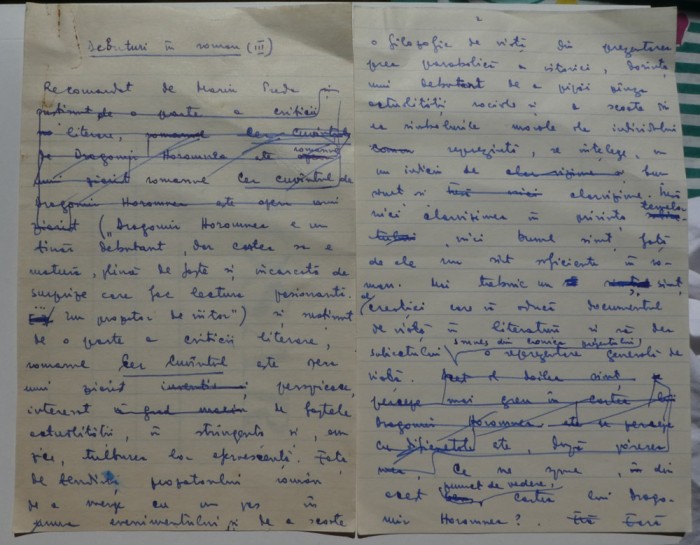 Debuturi în roman (III)
Recomandat de Marin Preda și
susținut de o parte a criticii
literare, romanul Cer cuvîntul
de Dragomir Horomnea este romanul
unui ziarist romanul Cer cuvîntul de
Dragomir Horomnea este opera unui
ziarist („Dragomir Horomnea e un
tînăr debutant, dar cartea sa e
matură, plină de fapte și încărcată de
surprize care fac lectura pasionantă.
Un prozator de viitor”) și susținut
de o parte a criticii literare,
romanul Cer Cuvîntul este opera
unui ziarist inventiv perspicace,
interesat de faptele
actualității, în stringența și, am
zice, tulburea lor efervescență. Este
de prozatorului român
de a merge cu un pas în
urma evenimentului și de a scoate
2
o filozofie de viață din prezentarea
prea parabolică a istoriei, dorința
unui debutant de a păși lîngă
actualități sociale și a scoate din
ea simbolurile morale ale individului
reprezintă, se înțelege, un
un indiciu de clarviziune și bun
simț și fără nici clarviziune. Însă
nici clarviziunea în privința
nici bunul simț, față
de ele nu sînt suficiente în ro-
man. Mai trebuie un simț
al creației care să aducă documentul
de viață în literatură și să dea
subiectului smuls din cronica prezentului
o reprezentare generală de
viață. Acest al doilea simț se
percepe mai greu în cartea lui
Dragomir Horomnea. se percepe
cu dificultate este, după părerea
mea, Ce ne spune, în din
acest punct de vedere, cartea lui Drago-
mir Horomnea? Fără